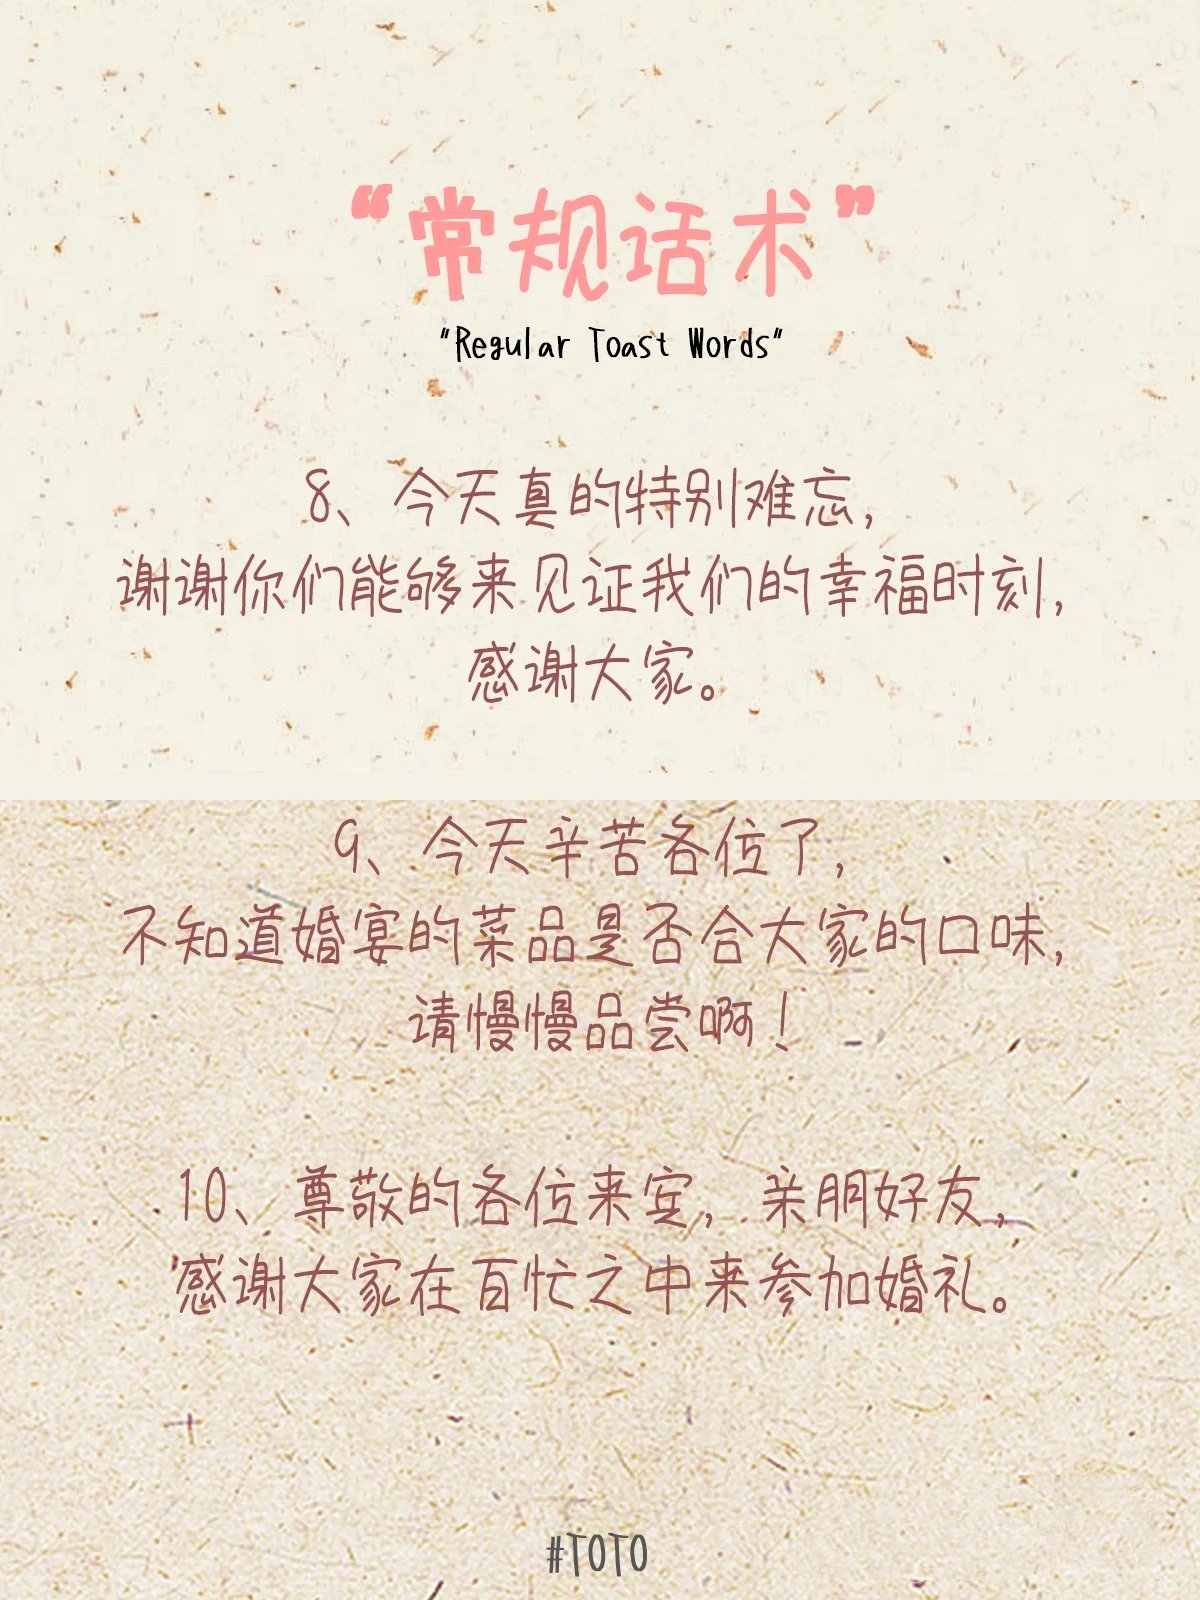 “常规话术”
"Regular Toast Words"
8、今天真的特别难忘，
谢谢你们能够来见证我们的幸福时刻，
感谢大家。
9、今天辛苦各位了，
不知道婚宴的菜品是否合大家的口味，
请慢慢品尝啊！
10、尊敬的各位来宾，亲朋好友，
感谢大家在百忙之中来参加婚礼。
#TOTO